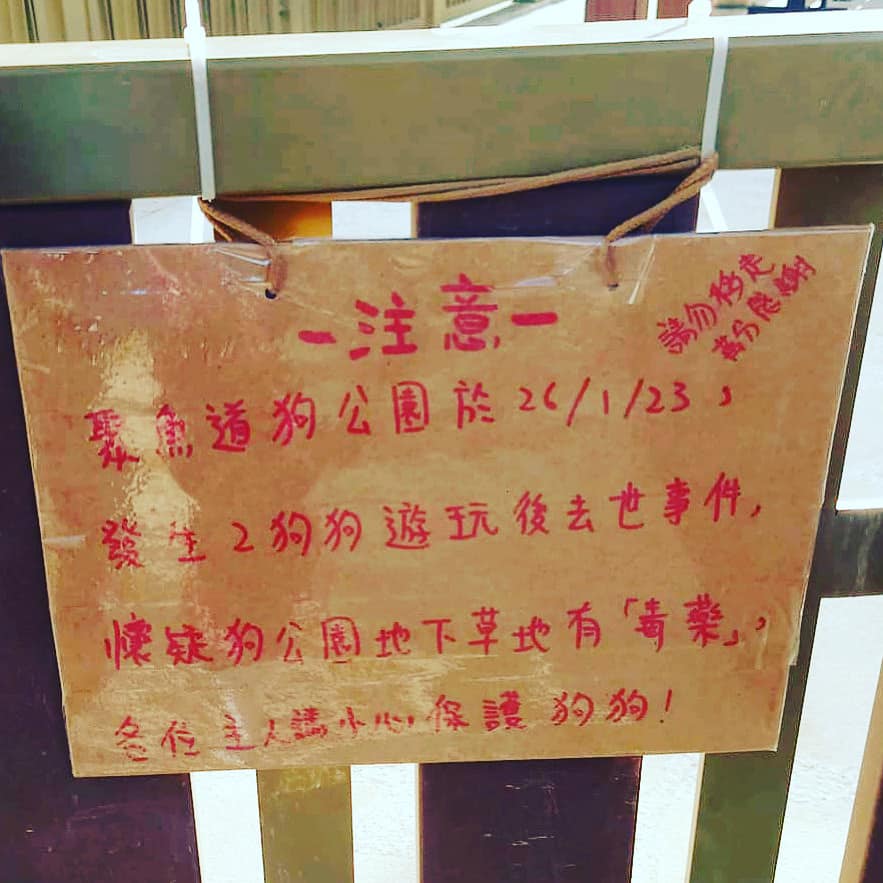 －注意－
請勿移走
萬分感謝
聚魚道狗公園於26/1/23，
發生2狗狗遊玩後去世事件，
懷疑狗公園地下草地有「毒藥」，
各位主人請小心保護狗狗！